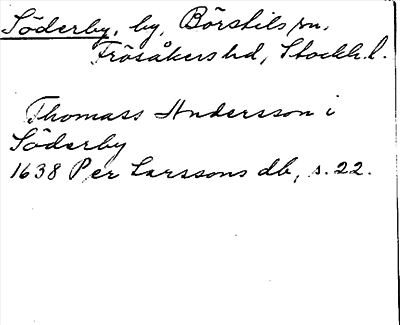 Söderby, by, Börstils sn,
Frösåkers hd, Stockh. l.
Thomass Andersson i
Söderby
1638 Per Larssons db, s. 22.